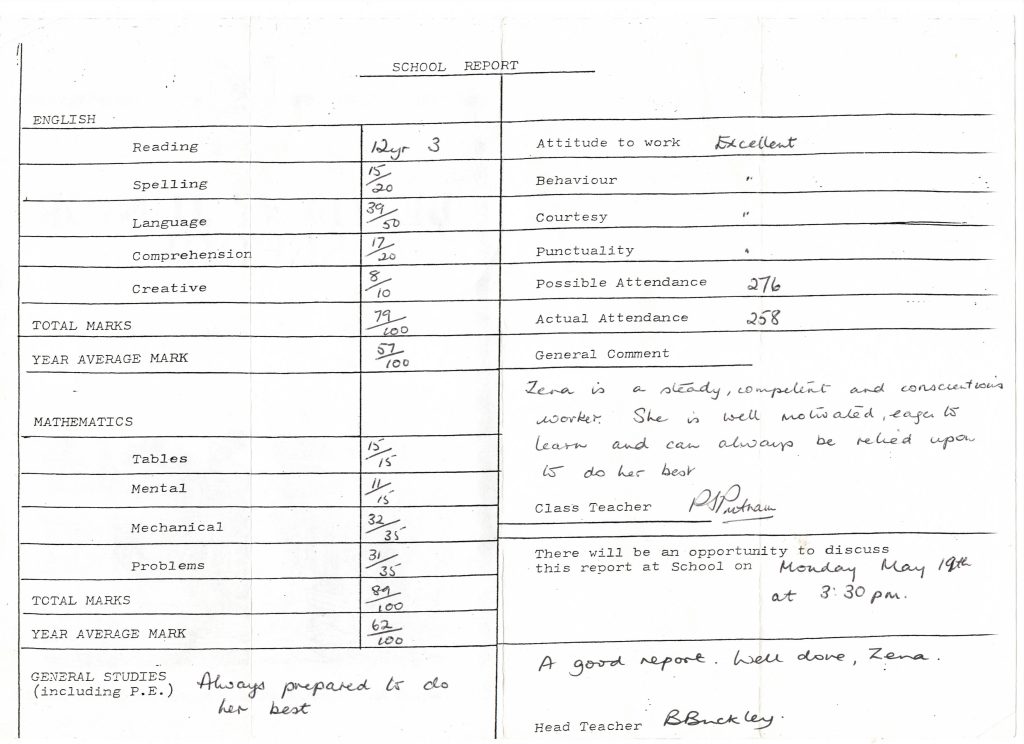 SCHOOL REPORT
ENGLISH
Reading 12yr 3
Spelling 15/20
Language 39/50
Comprehension 17/20
Creative 8/10
TOTAL MARKS 79/100
YEAR AVERAGE MARK 57/100
MATHEMATICS
Tables 15/15
Mental 11/15
Mechanical 32/35
Problems 31/35
TOTAL MARKS 89/100
YEAR AVERAGE MARK 62/100
GENERAL STUDIES
(including P.E.) Always prepared to do
her best
Attitude to work Excellent
Behaviour "
Courtesy "
Punctuality "
Possible Attendance 276
Actual Attendance 258
General Comment
Zena is a steady, competent and conscientious
worker. She is well motivated, eager to
learn and can always be relied upon
to do her best
Class Teacher PJPutnam
There will be an opportunity to discuss
this report at School on Monday May 19th
at 3.30 pm.
A good report. Well done, Zena.
Head Teacher BBuckley.